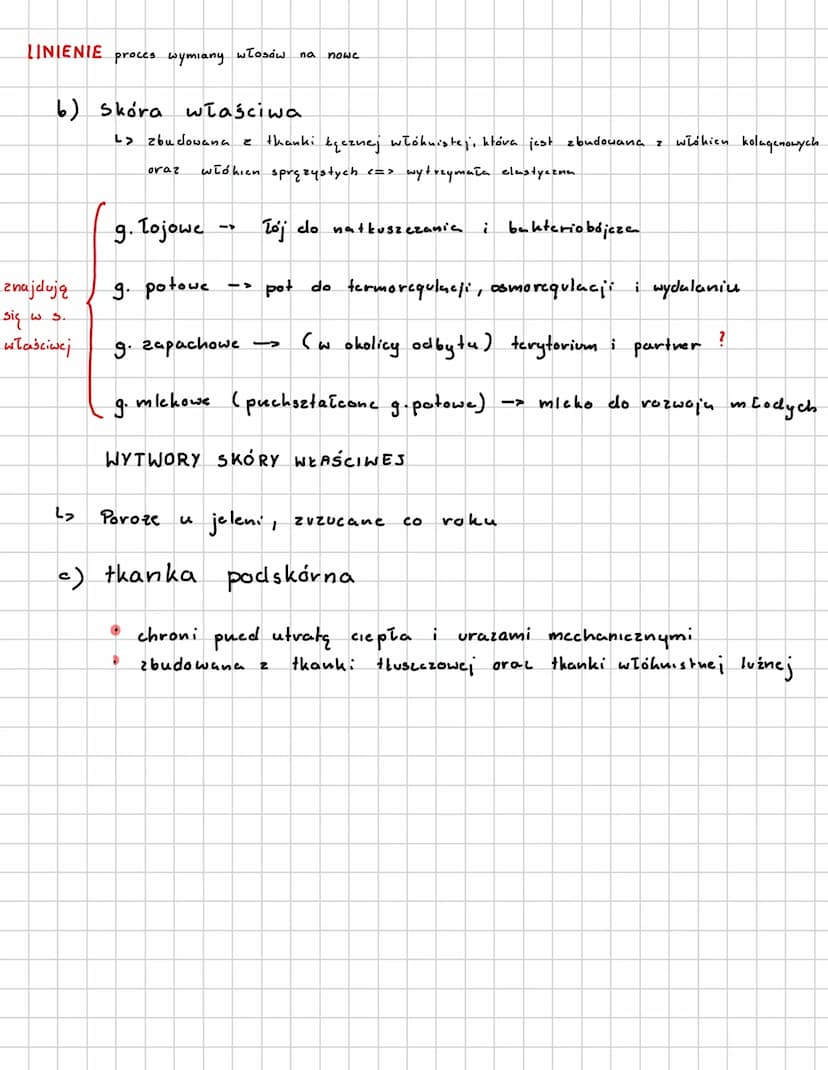 LINIENIE proces wymiany włosów na nowe
b) skóra właściwa
↳ zbudowana z tkanki łącznej włóknistej, która jest zbudowana z włókien kolagenowych
oraz włókien sprężystych <=> wytrzymała elastyczna
g. łojowe --> łój do natłuszczania i bakteriobójcze
g. potowe --> pot do termoregulacji, osmoregulacji i wydalaniu
g. zapachowe —> (w okolicy odbytu) terytorium i partner ?
g. mlekowe (puekształcone g. potowe) —> mleko do rozwoju młodych
znajdują
się w s.
właściwej
WYTWORY SKÓRY WŁAŚCIWEJ
↳ Poroże u jeleni, zrzucane co roku
c) tkanka podskórna
• chroni pued utratą ciepła i urazami mechanicznymi
• zbudowana z tkanki tłuszczowej oraz tkanki włóknistnej luźnej